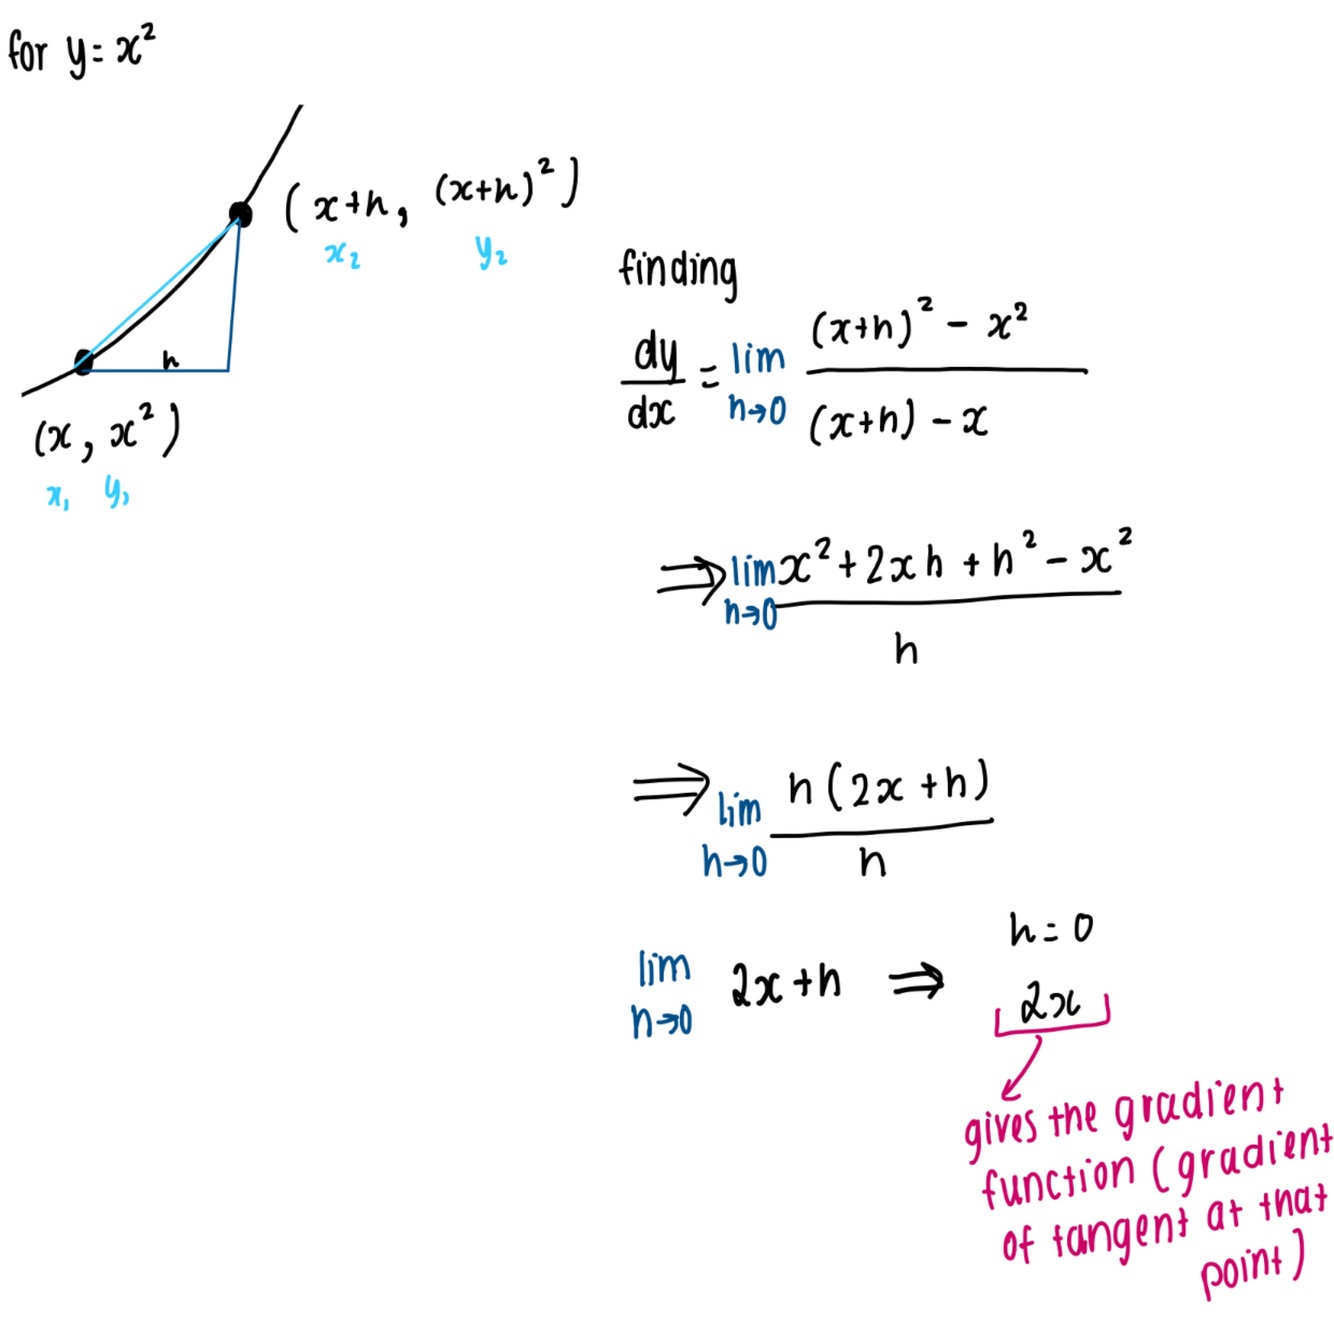 for y = x²
(x+h, (x+h)²)
x₂ y₂
h
(x, x²)
x₁ y₁
finding
dy/dx = lim h→0 ((x+h)² − x²)/((x+h) − x)
⇒ lim h→0 (x² + 2xh + h² − x²)/h
⇒ lim h→0 h(2x+h)/h
h = 0
lim h→0 2x+h ⇒ 2x
gives the gradient
function (gradient
of tangent at that
point)